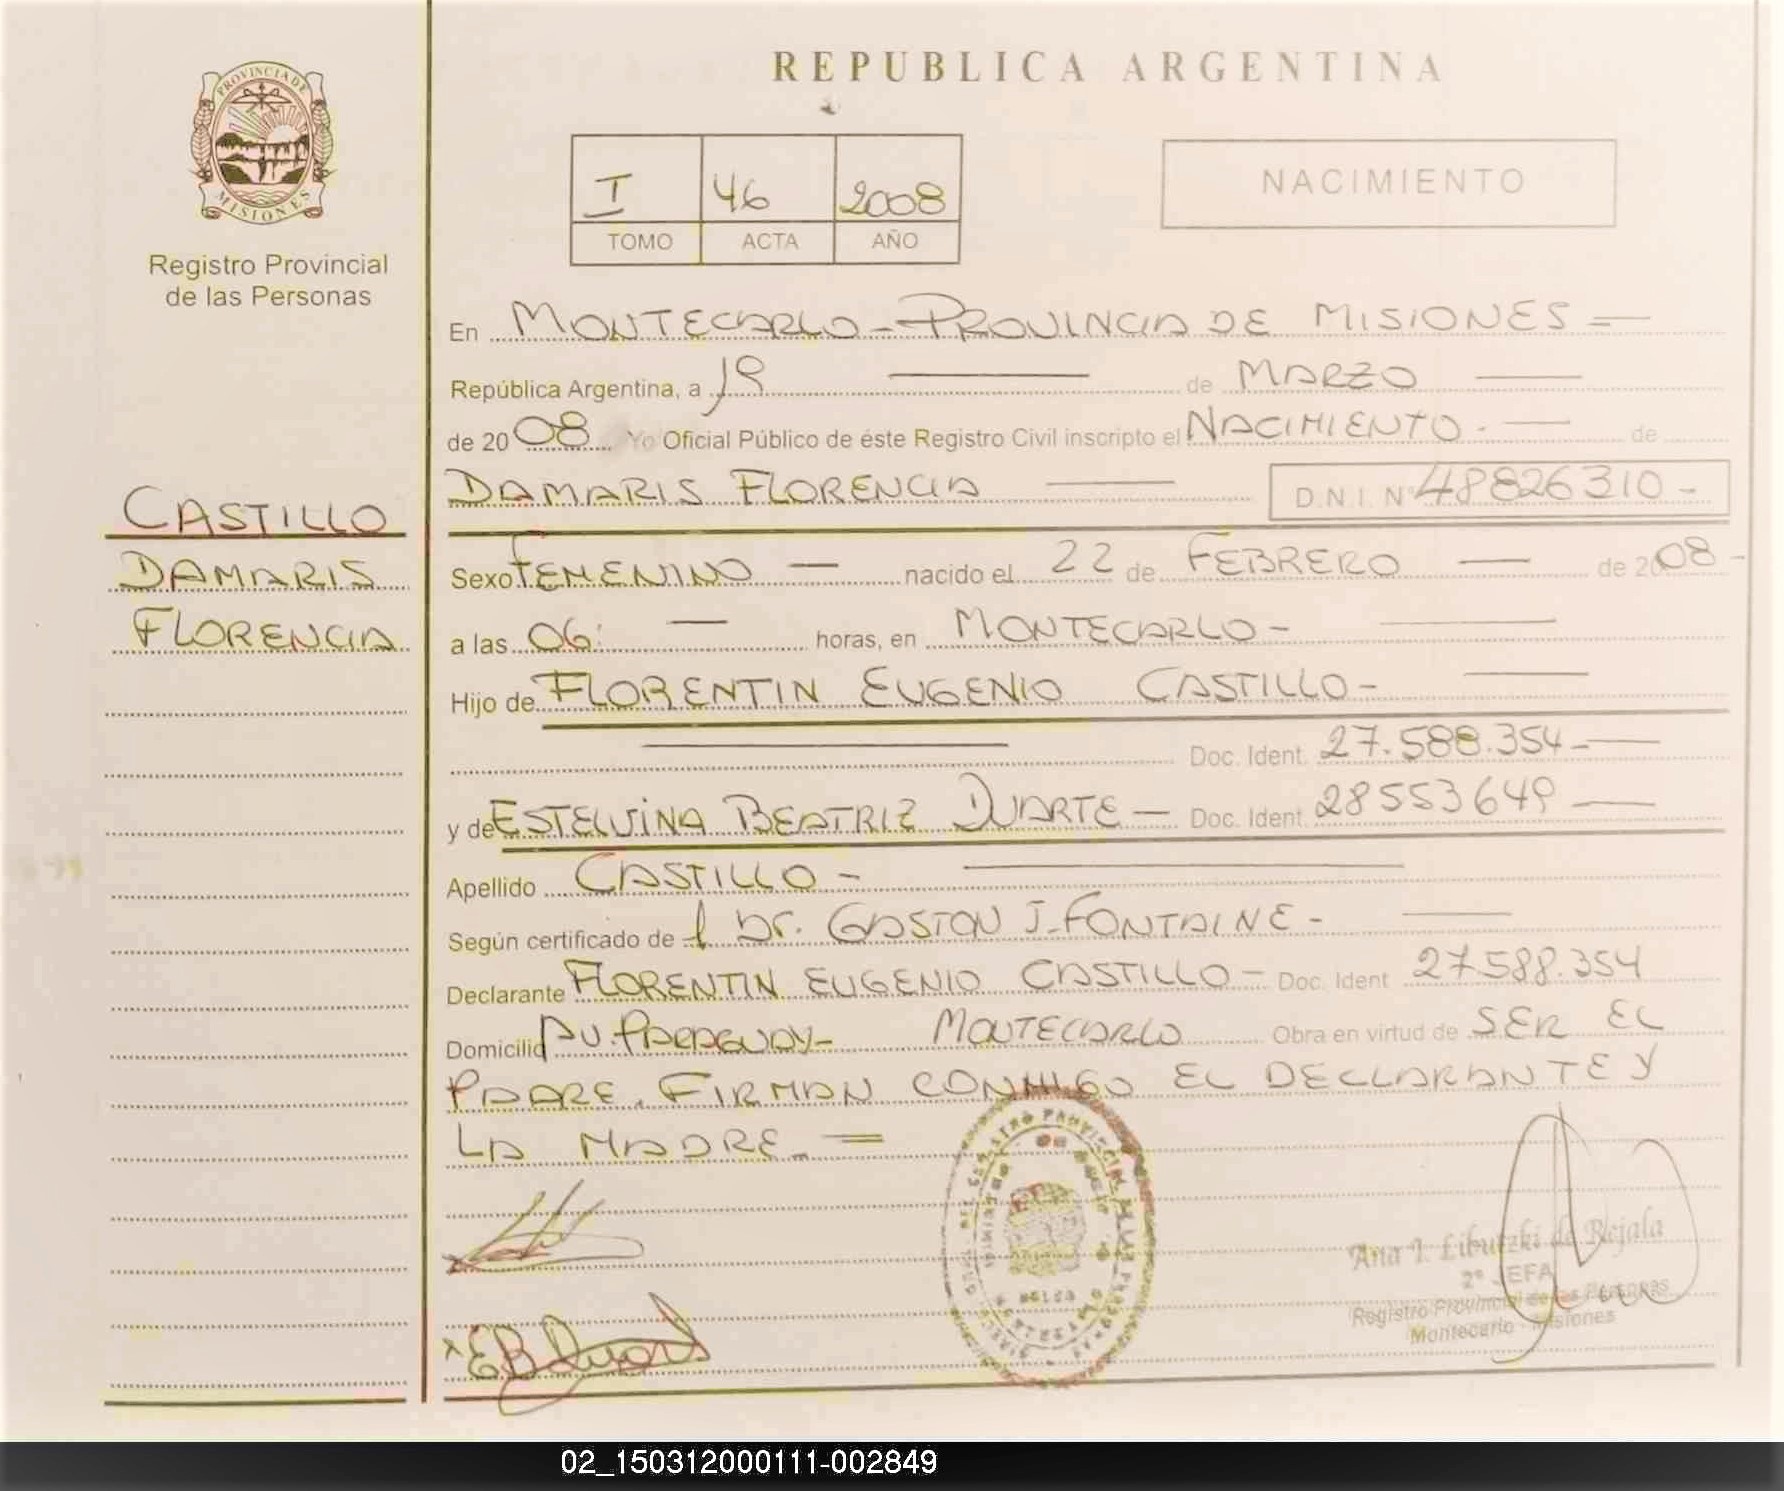 REPUBLICA ARGENTINA
PROVINCIA DE
MISIONES
Registro Provincial
de las Personas
I 46 2008
TOMO ACTA AÑO
NACIMIENTO
En MONTECARLO - PROVINCIA DE MISIONES =
República Argentina, a 19 de MARZO
de 2008 Yo Oficial Público de éste Registro Civil inscripto el NACIMIENTO.- de
DAMARIS FLORENCIA D.N.I. Nº 48826310 -
CASTILLO
DAMARIS
FLORENCIA
Sexo FEMENINO — nacido el 22 de FEBRERO — de 2008 -
a las 06: — horas, en MONTECARLO -
Hijo de FLORENTIN EUGENIO CASTILLO -
Doc. Ident. 27.588.354 -
y de ESTELVINA BEATRIZ DUARTE — Doc. Ident. 28553649 —
Apellido CASTILLO -
Según certificado de l Dr. GASTON J. FONTAINE -
Declarante FLORENTIN EUGENIO CASTILLO - Doc. Ident 27.588.354
Domicilio AV. PARAGUAY - MONTECARLO Obra en virtud de SER EL
PADRE. FIRMAN CONMIGO EL DECLARANTE Y
LA MADRE. =
Ana I. Libutzki de Rejala
2º JEFA
Registro Provincial de las Personas
Montecarlo - Misiones
02_150312000111-002849